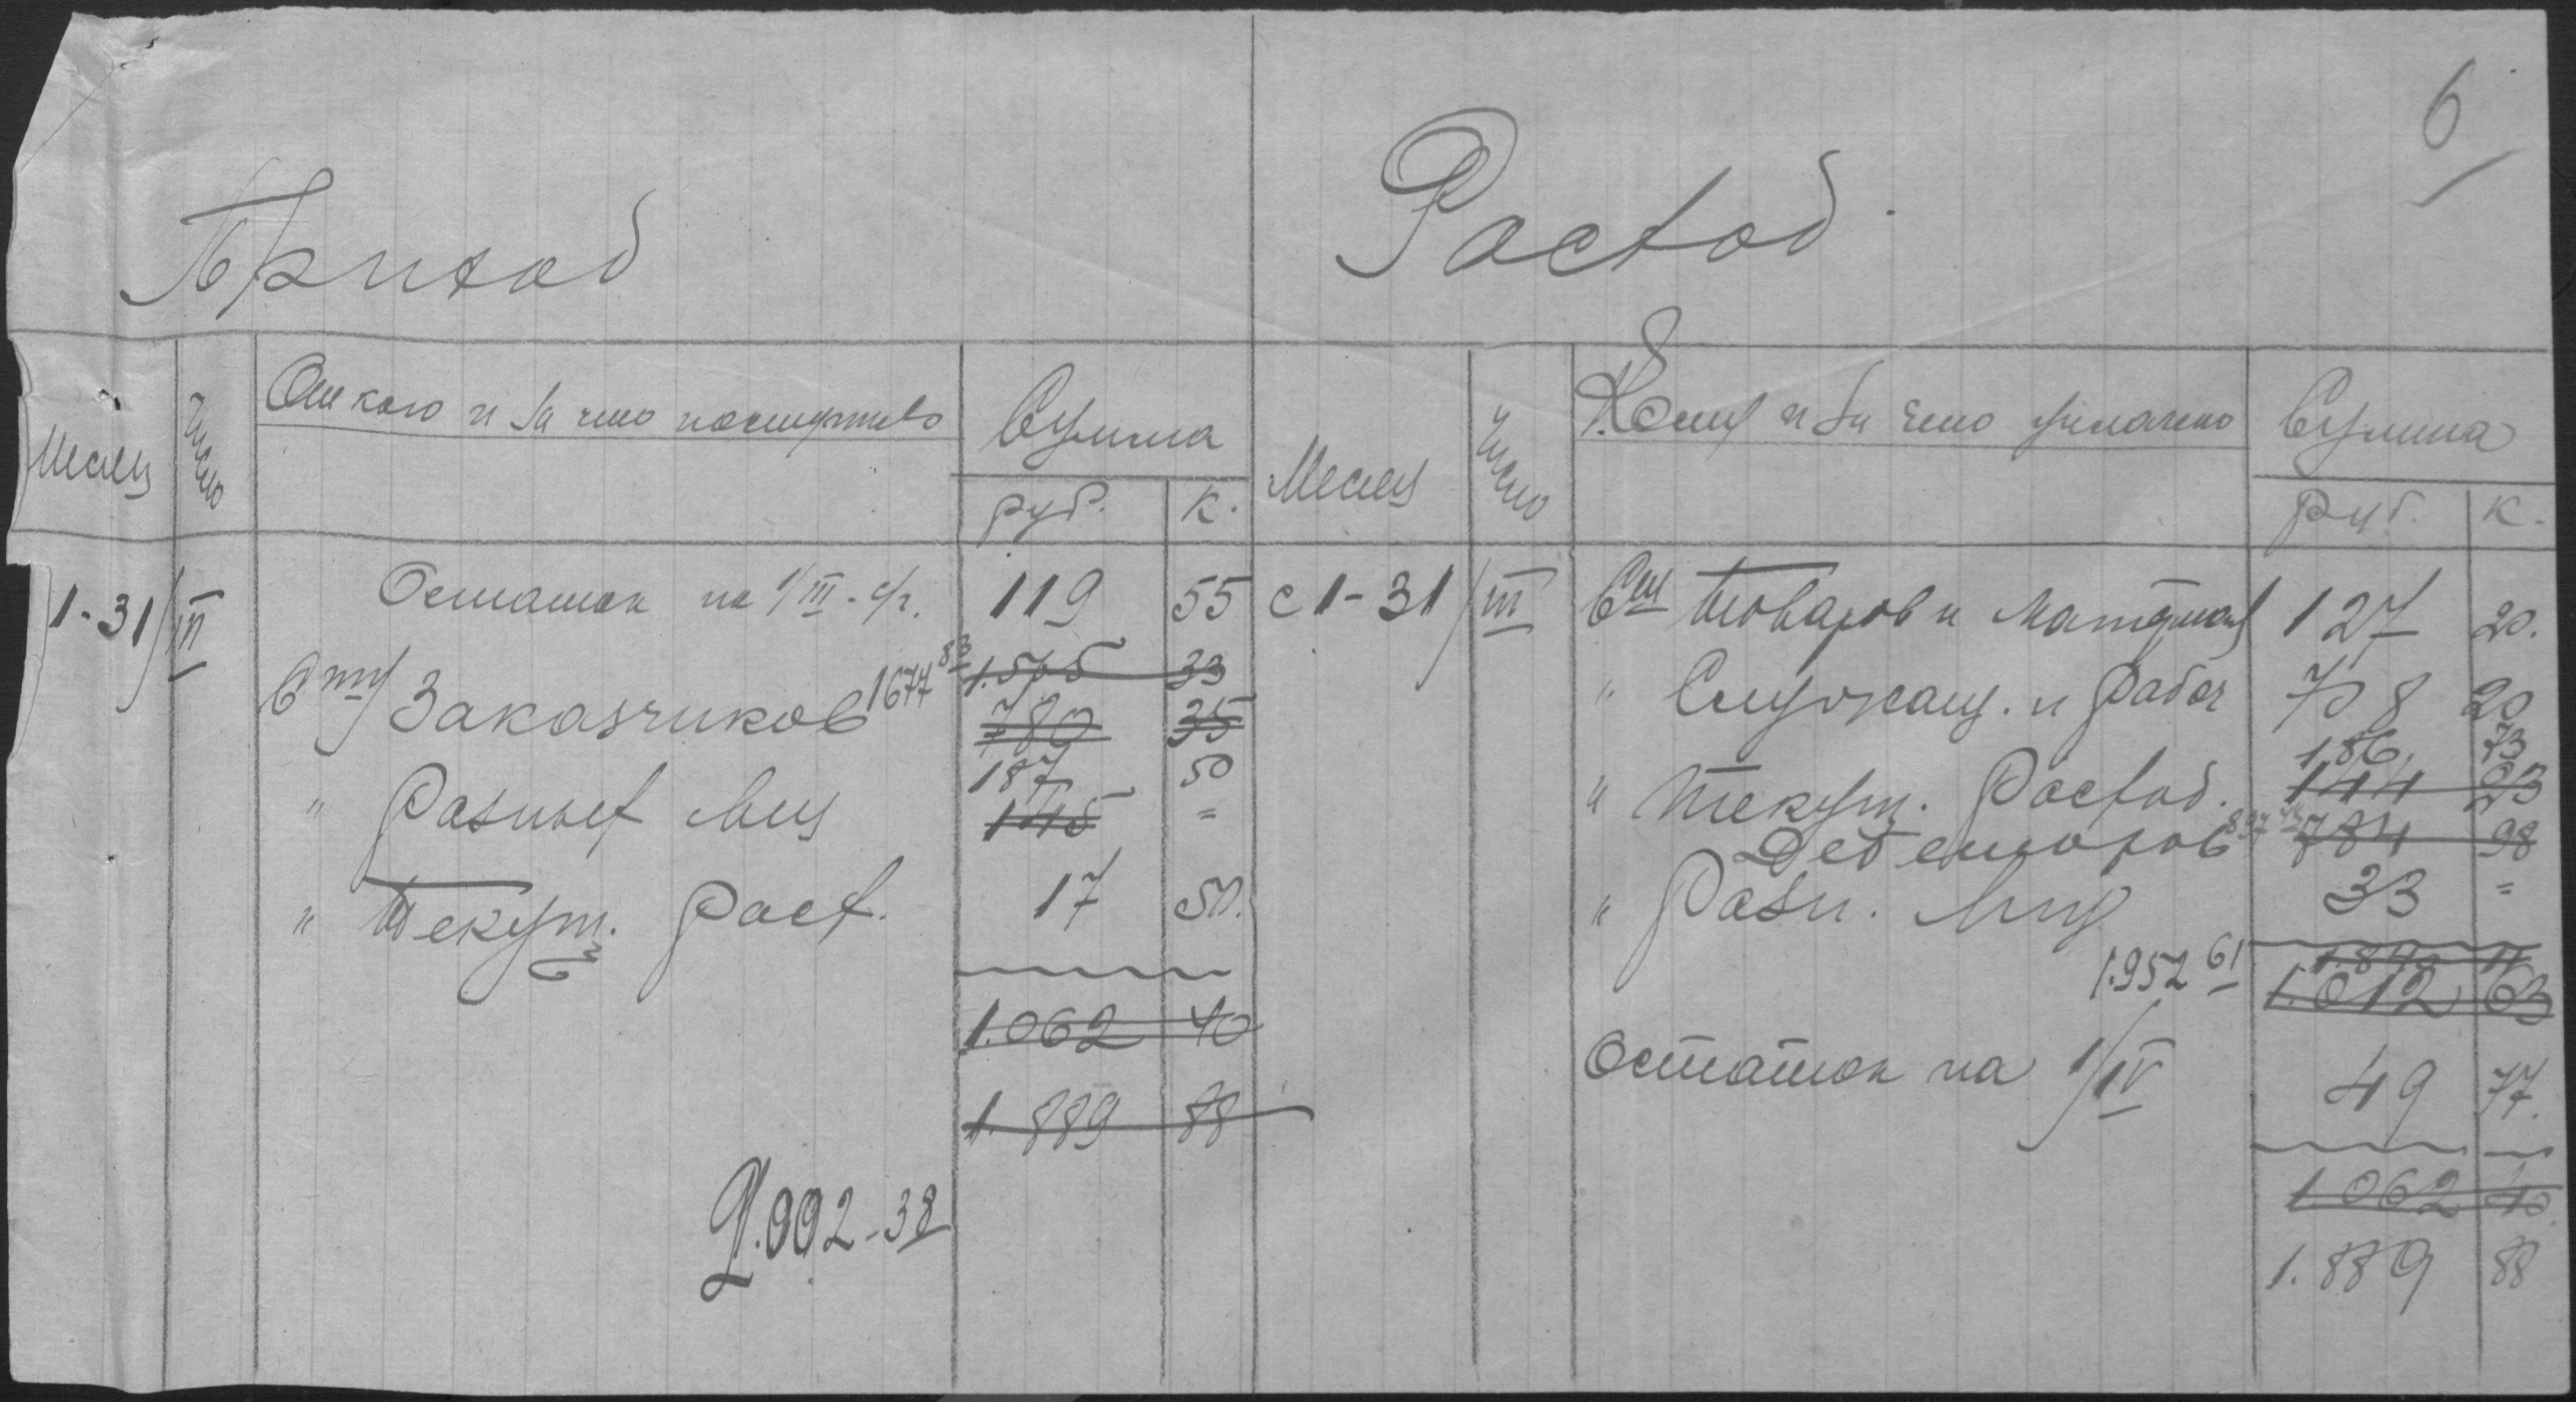 6
Приход
Расход
Месяц
Число
От кого и за что поступило
Сумма
руб.
к.
Месяц
Число
Кому и за что уплачено
Сумма
руб.
к.
1-31/III
Остаток на 1/III - с/г.
119
55
Сту Заказчиков 1677 83
1.565
33
780
35
" Разных лиц
187
50
145
=
" Текущ. расх.
17
50.
1.062
40
1.889
88
2.002-38
с 1-31/III
Сш Товаров и Материал
127
20.
" Служащ. и Рабоч
708
20
" Текущ. Расход.
186
73
144
23
Дебеторов 897
784
98
" Разн. лиц
33
=
1.952 61
1.012
63
Остаток на 1/IV
49
77.
1.062
40
1.889
88